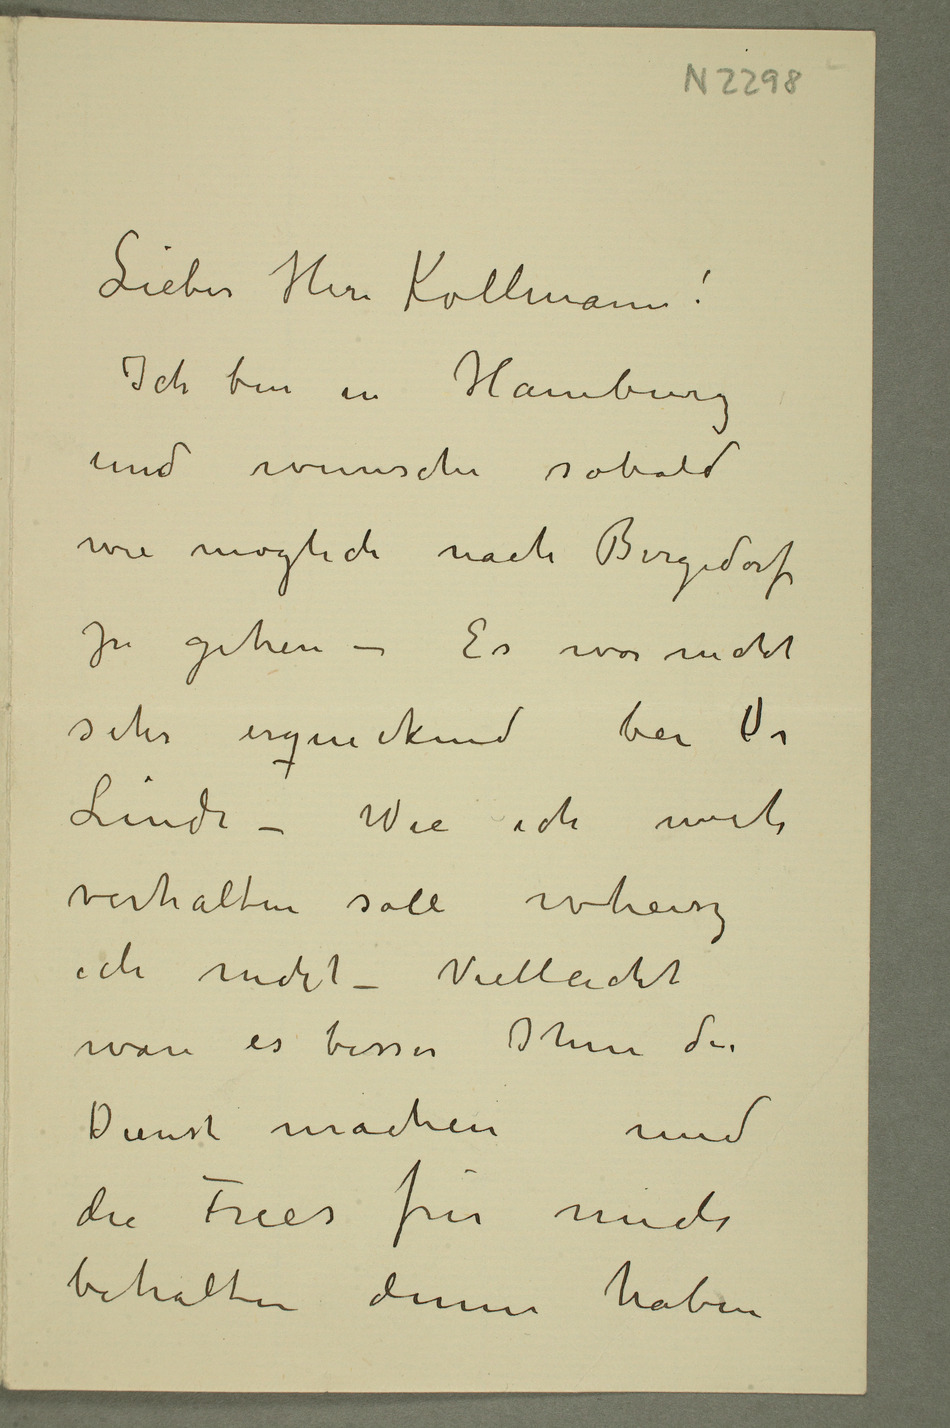 N 2298
Lieber Herr Kollmann!
Ich bin in Hamburg
und wunsche sobald
wie moglich nach Bergedorf
zu gehen – Es war nicht
sehr erquickend bei Dr
Linde – Wie ich mich
verhalten soll wheisz
ich nicht – Vielleicht
ware es besser Ihm den
Dienst machen und
die Fries für mich
behalten denn haben